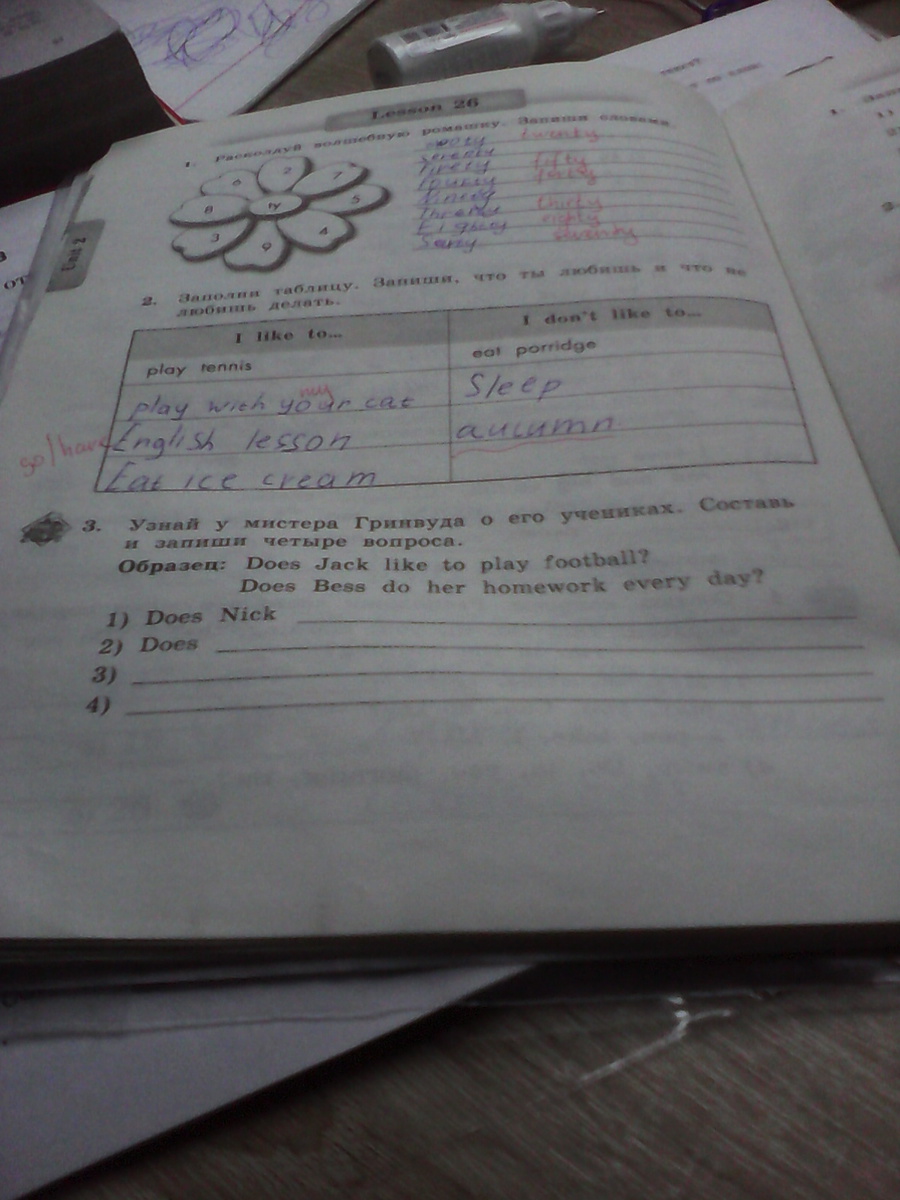 Lesson 26
1. Расколдуй волшебную ромашку. Запиши словами.
6 2 7
8 ty 5
3 9 4
twenty
fifty
thirty
eighty
seventy
Unit 2
2. Заполни таблицу. Запиши, что ты любишь и что не
любишь делать.
I like to... I don't like to...
play tennis eat porridge
my
play with your cat Sleep
go/have English lesson autumn
Eat ice cream
3. Узнай у мистера Гринвуда о его учениках. Составь
и запиши четыре вопроса.
Образец: Does Jack like to play football?
Does Bess do her homework every day?
1) Does Nick
2) Does
3)
4)